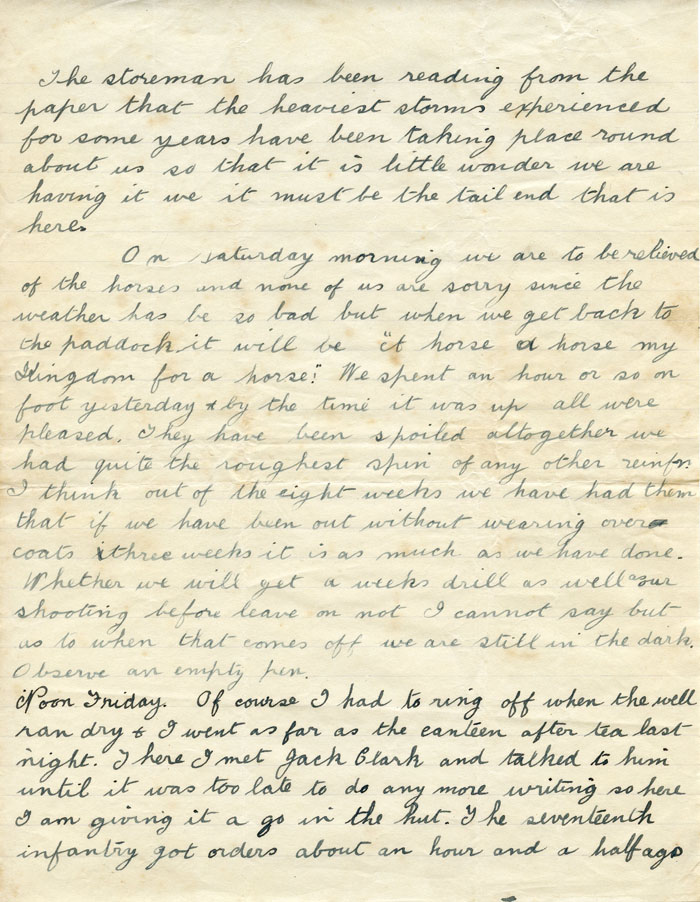 The storeman has been reading from the
paper that the heaviest storms experienced
for some years have been taking place round
about us so that it is little wonder we are
having it we it must be the tail end that is
here.
On saturday morning we are to be relieved
of the horses and none of us are sorry since the
weather has be so bad but when we get back to
the paddock it will be "A horse a horse my
Kingdom for a horse." We spent an hour or so on
foot yesterday & by the time it was up all were
pleased. They have been spoiled altogether we
had quite the roughest spin of any other reinfs.
I think out of the eight weeks we have had them
that if we have been out without wearing over
coats three weeks it is as much as we have done.
Whether we will get a weeks drill as well as our
shooting before leave on not I cannot say but
as to when that comes off we are still in the dark.
Observe an empty pen.
Noon Friday. Of course I had to ring off when the well
ran dry & I went as far as the canteen after tea last
night. There I met Jack Clark and talked to him
until it was too late to do any more writing so here
I am giving it a go in the hut. The seventeenth
infantry got orders about an hour and a half ago